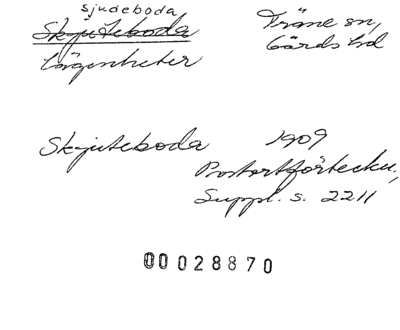 sjudeboda
Skjuteboda
Träne sn,
Gärds hd
lägenheter
Skjuteboda 1909
Postortförteckn.,
Suppl. s. 2211
00028870